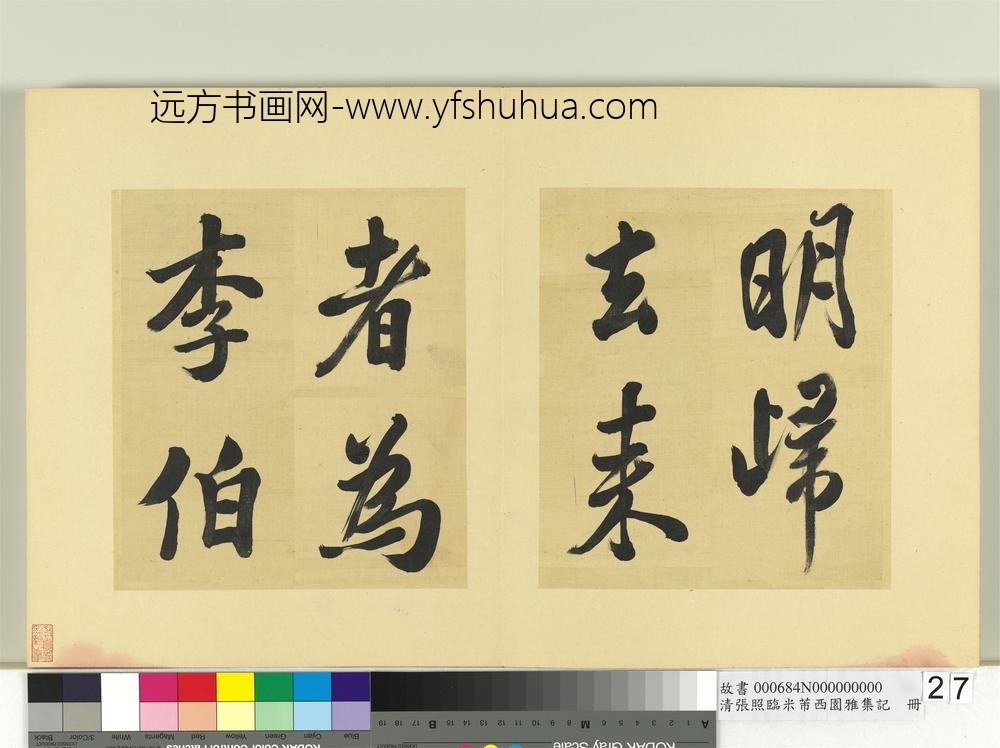 远方书画网-www.yfshuhua.com
明歸
去来
者為
李伯
故書 000684N000000000
清張照臨米芾西園雅集記 冊
27
Black
3/Color
White
Magenta
Red
Yellow
Green
Cyan
Blue
KODAK Color Control Patches
KODAK Gray Scale
A 1 2 3 4 5 6 M 8 9 10 11 12 13 14 15 B 17 18 19